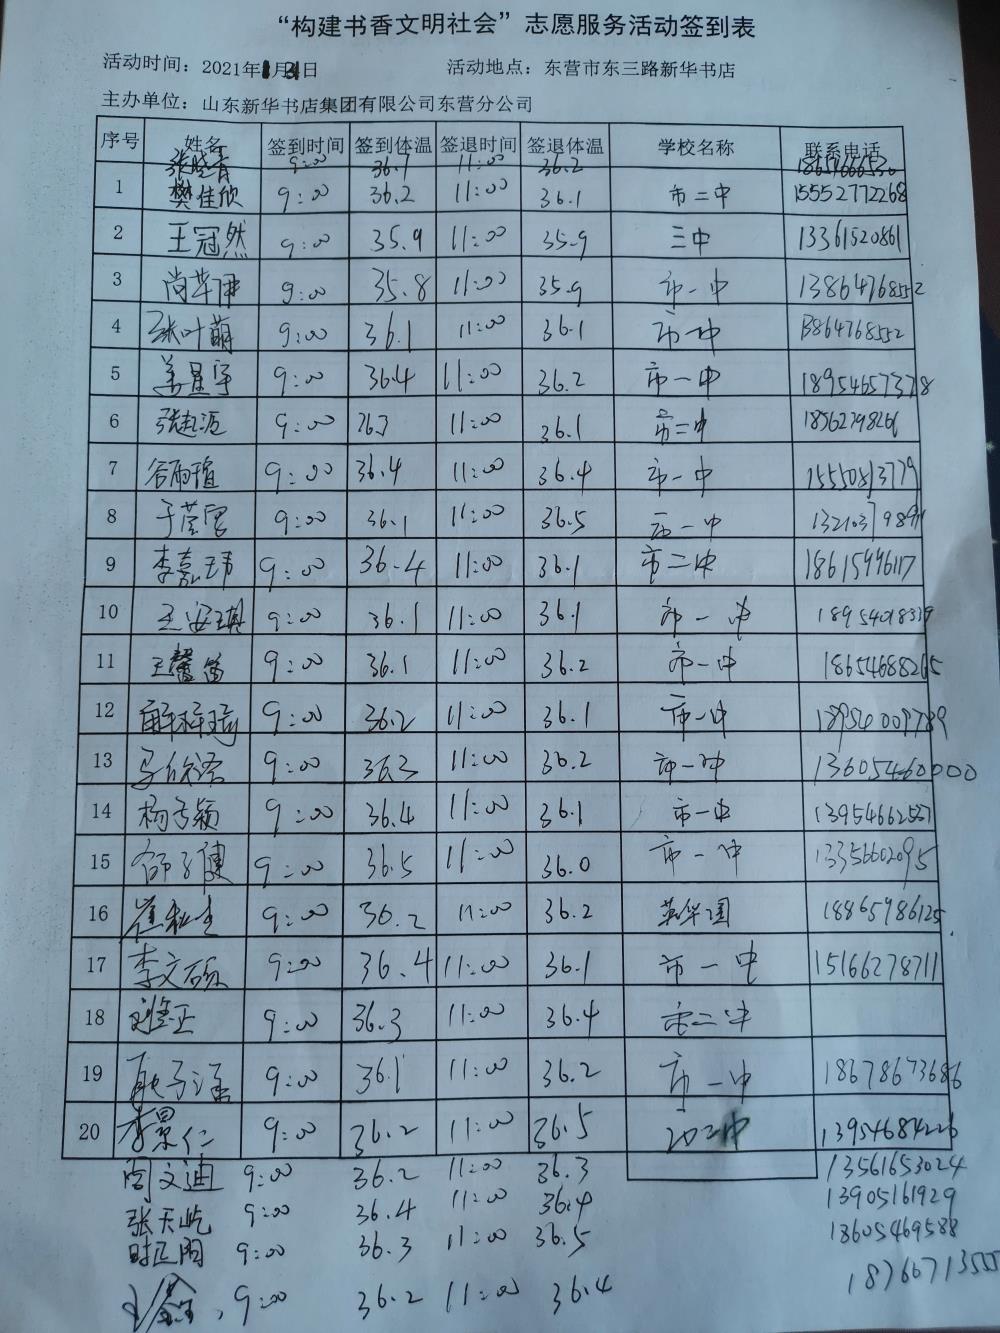 “构建书香文明社会”志愿服务活动签到表
活动时间：2021年 月 日 活动地点：东营市东三路新华书店
主办单位：山东新华书店集团有限公司东营分公司
序号 姓名 签到时间 签到体温 签退时间 签退体温 学校名称 联系电话
张晓青 9:00 36.1 11:00 36.2
1 樊佳欣 9:00 36.2 11:00 36.1 市二中 15552772268
2 王冠然 9:00 35.9 11:00 35.9 三中 13361520861
3 9:00 35.8 11:00 35.9 市一中 13864768552
4 张叶萌 9:00 36.1 11:00 36.1 市一中 13864768552
5 姜星宇 9:00 36.4 11:00 36.2 市一中 18954657378
6 9:00 36.3 11:00 36.1 市二中
7 谷雨瑄 9:00 36.4 11:00 36.4 市一中 15550813779
8 9:00 36.1 11:00 36.5 市一中
9 李嘉玮 9:00 36.4 11:00 36.1 市二中
10 王安琪 9:00 36.1 11:00 36.1 市一中
11 王馨笛 9:00 36.1 11:00 36.2 市一中 18654688265
12 9:00 36.2 11:00 36.1 市一中 18954009789
13 9:00 36.3 11:00 36.2 市一中 13605460000
14 杨子颖 9:00 36.4 11:00 36.1 市一中
15 9:00 36.5 11:00 36.0 市一中 13356602095
16 9:00 36.2 11:00 36.2 英华园 18865986125
17 李文硕 9:00 36.4 11:00 36.1 市一中 15166278711
18 9:00 36.3 11:00 36.4 市二中
19 耿子涵 9:00 36.1 11:00 36.2 市一中 18678673686
20 李景仁 9:00 36.2 11:00 36.5 13954684226
阎文迪 9:00 36.2 11:00 36.3 13561653024
张天屹 9:00 36.4 11:00 36.4 13905161929
时正阳 9:00 36.3 11:00 36.5 18605469588
9:00 36.2 11:00 36.4